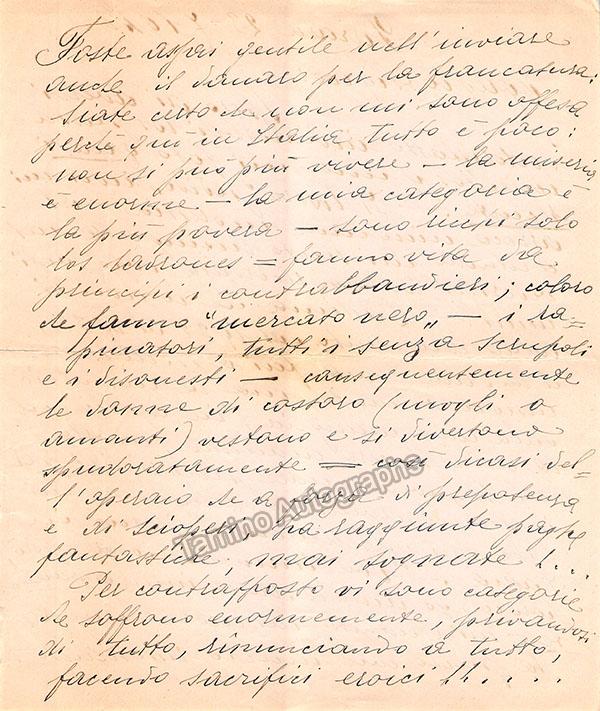 Foste assai gentile nell'inviare
anche il danaro per la francatura:
siate certo che non mi sono offesa
perché quì in Italia tutto è poco:
non si può più vivere — la miseria
è enorme — la mia categoria è
la più povera — sono ricchi solo
los ladrones = fanno vita da
principi i contrabbandieri; coloro
che fanno "mercato nero" — i ra=
pinatori, tutti i senza scrupoli
e i disonesti — conseguentemente
le donne di costoro (mogli o
amanti) vestono e si divertono
spudoratamente = così dicasi del=
l'operaio che a forza di prepotenza
e di scioperi, ha raggiunte paghe
fantastiche, mai sognate !...
Per contrapposto vi sono categorie
che soffrono enormemente, privandosi
di tutto, rinunciando a tutto,
facendo sacrifici eroici !!....
Tamino Autographs